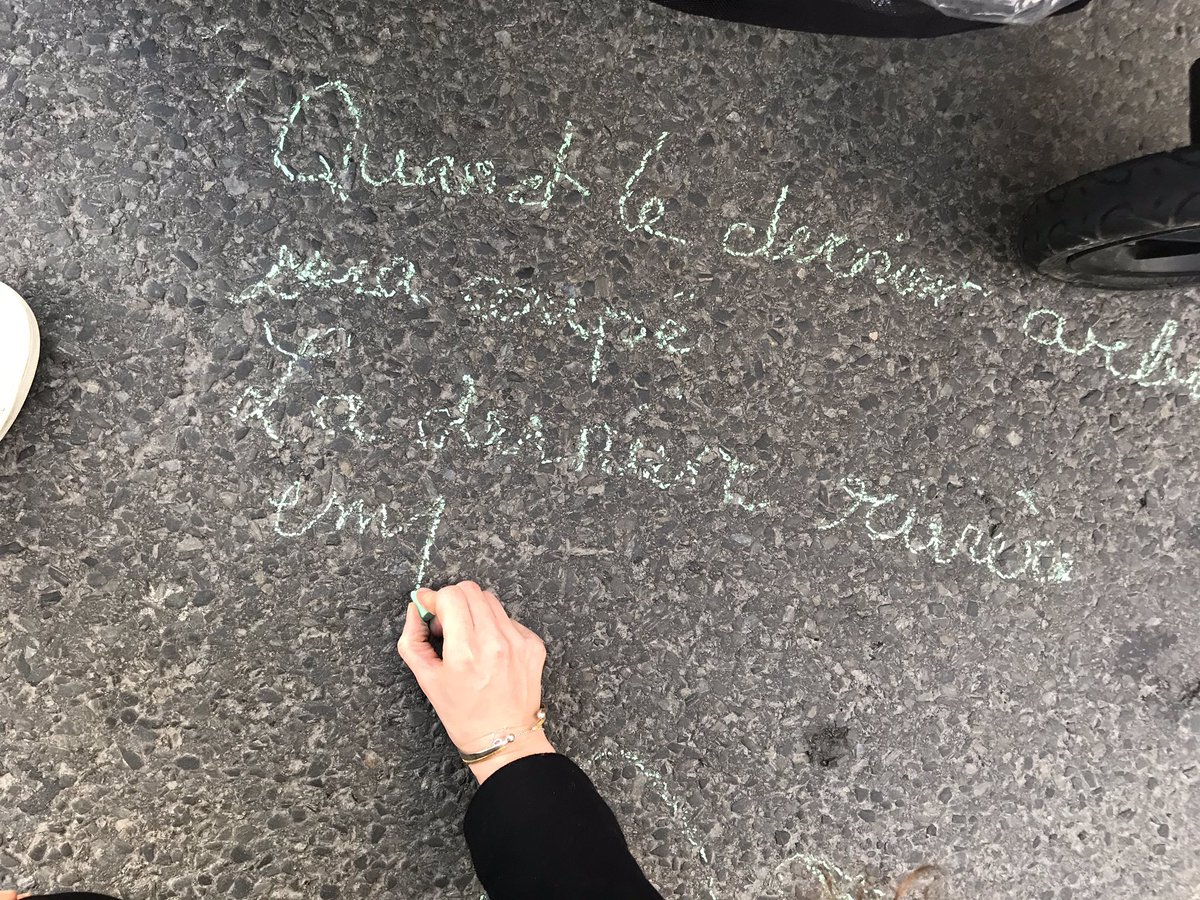 Quand le dernier arb
sera coupé
La dernière rivière
emp